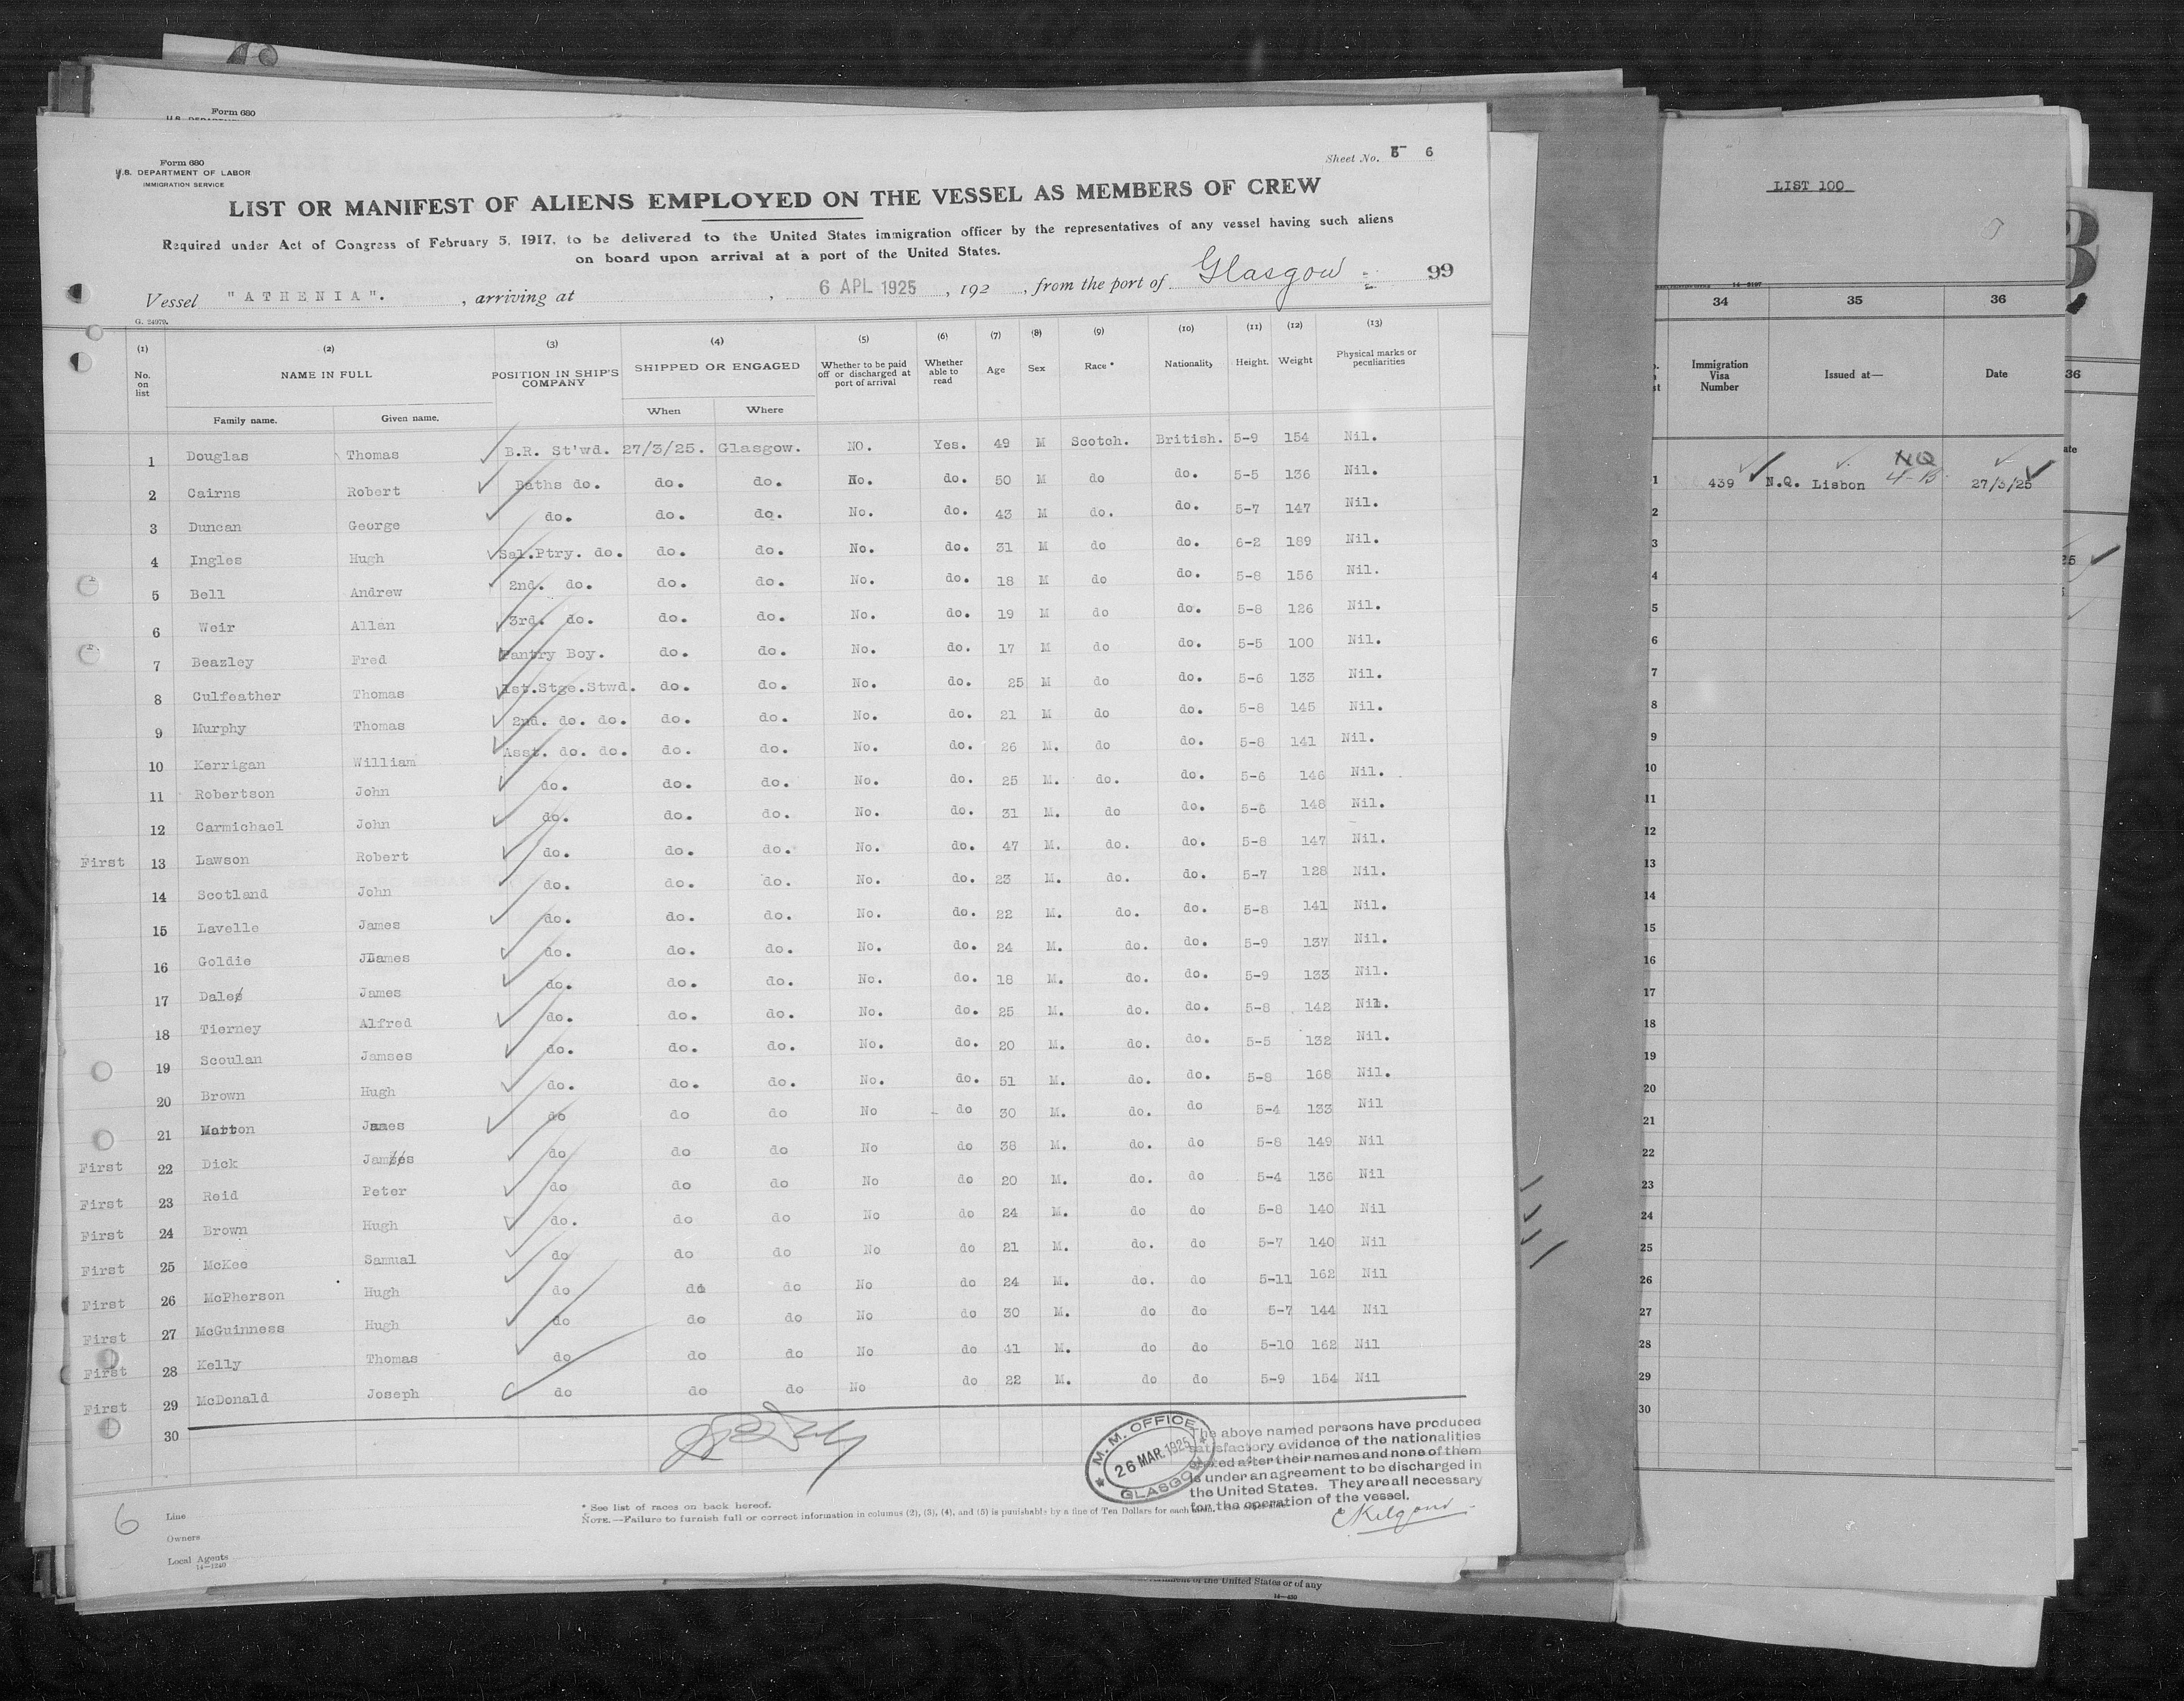 Form 680
Form 680
U.S. DEPARTMENT OF LABOR
IMMIGRATION SERVICE
Sheet No. 5 6
LIST OR MANIFEST OF ALIENS EMPLOYED ON THE VESSEL AS MEMBERS OF CREW
Required under Act of Congress of February 5, 1917, to be delivered to the United States immigration officer by the representatives of any vessel having such aliens
on board upon arrival at a port of the United States.
Vessel "ATHENIA". , arriving at , 6 APL 1925 , 192 , from the port of Glasgow 99
G. 24079.
(1) (2) (3) (4) (5) (6) (7) (8) (9) (10) (11) (12) (13)
No. on list NAME IN FULL POSITION IN SHIP'S COMPANY SHIPPED OR ENGAGED Whether to be paid off or discharged at port of arrival Whether able to read Age Sex Race * Nationality Height. Weight Physical marks or peculiarities
Family name. Given name. When Where
1 Douglas Thomas B.R. St'wd. 27/3/25. Glasgow. NO. Yes. 49 M Scotch. British. 5-9 154 Nil.
2 Cairns Robert Baths do. do. do. No. do. 50 M do do. 5-5 136 Nil.
3 Duncan George do. do. do. No. do. 43 M do. do. 5-7 147 Nil.
4 Ingles Hugh Sal.Ptry. do. do. do. No. do. 31 M do do. 6-2 189 Nil.
5 Bell Andrew 2nd. do. do. do. No. do. 18 M do do. 5-8 156 Nil.
6 Weir Allan 3rd. do. do. do. No. do. 19 M do do. 5-8 126 Nil.
7 Beazley Fred Pantry Boy. do. do. No. do. 17 M do do. 5-5 100 Nil.
8 Culfeather Thomas 1st.Stge.Stwd. do. do. No. do. 25 M do do. 5-6 133 Nil.
9 Murphy Thomas 2nd. do. do. do. do. No. do. 21 M do do. 5-8 145 Nil.
10 Kerrigan William Asst. do. do. do. do. No. do. 26 M. do do. 5-8 141 Nil.
11 Robertson John do. do. do. No. do. 25 M. do. do. 5-6 146 Nil.
12 Carmichael John do. do. do. No. do. 31 M. do do. 5-6 148 Nil.
First 13 Lawson Robert do. do. do. No. do. 47 M. do. do. 5-8 147 Nil.
14 Scotland John do. do. do. No. do. 23 M. do. do. 5-7 128 Nil.
15 Lavelle James do. do. do. No. do. 22 M. do. do. 5-8 141 Nil.
16 Goldie James do. do. do. No. do. 24 M. do. do. 5-9 137 Nil.
17 Dale James do. do. do. No. do. 18 M. do. do. 5-9 133 Nil.
18 Tierney Alfred do. do. do. No. do. 25 M. do. do. 5-8 142 Nil.
19 Scoulan Jamses do. do. do. No. do. 20 M. do. do. 5-5 132 Nil.
20 Brown Hugh do. do. do. No. do. 51 M. do. do. 5-8 168 Nil.
21 James do do do No do 30 M. do. do 5-4 133 Nil
First 22 Dick James do do do No do 38 M. do. do 5-8 149 Nil
First 23 Reid Peter do do do No do 20 M. do. do 5-4 136 Nil
First 24 Brown Hugh do. do do No do 24 M. do do 5-8 140 Nil
First 25 McKee Samual do do do No do 21 M. do. do 5-7 140 Nil
First 26 McPherson Hugh do do do No do 24 M. do. do 5-11 162 Nil
First 27 McGuinness Hugh do do do No do 30 M. do do 5-7 144 Nil
First 28 Kelly Thomas do do do No do 41 M. do do 5-10 162 Nil
First 29 McDonald Joseph do do do No do 22 M. do do 5-9 154 Nil
30
M. M. OFFICE
26 MAR. 1925
GLASGOW
The above named persons have produced
satisfactory evidence of the nationalities
stated after their names and none of them
is under an agreement to be discharged in
the United States. They are all necessary
for the operation of the vessel.
* See list of races on back hereof.
NOTE.—Failure to furnish full or correct information in columns (2), (3), (4), and (5) is punishable by a fine of Ten Dollars for each alien.
6
Line
Owners
Local Agents
14—1240
LIST 100
34 35 36
Immigration Visa Number Issued at— Date
1 439 N.Q. Lisbon NQ 27/3/25
2
3
4
5
6
7
8
9
10
11
12
13
14
15
16
17
18
19
20
21
22
23
24
25
26
27
28
29
30
36
of the United States or of any
14—430